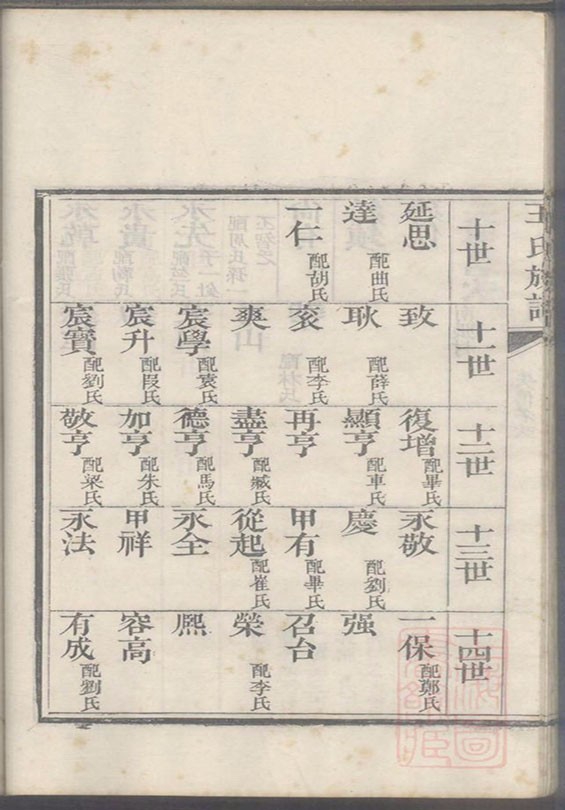 王氏族譜
十世
延思
達 配曲氏
一仁 配胡氏
十一世
致
耿 配薛氏
衮 配李氏
爽
宸學 配袁氏
宸升 配段氏
宸實 配劉氏
十二世
復增 配畢氏
顯亨 配車氏
再亨
盡亨 配臧氏
德亨 配馬氏
加亨 配朱氏
敬亨 配梁氏
十三世
永敬
慶 配劉氏
甲有 配畢氏
從起 配崔氏
永全
甲祥
永法
十四世
一保 配鄭氏
强
召台
榮 配李氏
熙
容高
有成 配劉氏